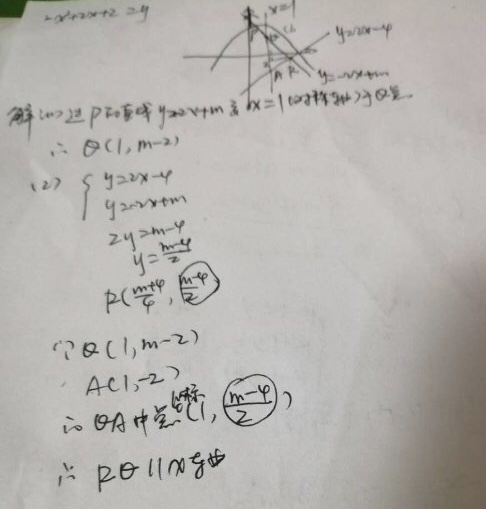 -x²+2x+2=y
x=1
y=2x-4
y=-2x+m
A R
解(1)过P的直线y=-2x+m交x=1(对称轴)于Q点
∴ Q(1,m-2)
(2) { y=2x-4
y=-2x+m
2y=m-4
y=\frac{m-4}{2}
R(\frac{m+4}{4}, \frac{m-4}{2})
Q(1,m-2)
A(1,-2)
∴ QA中点坐标(1, \frac{m-4}{2})
∴ RQ∥x轴